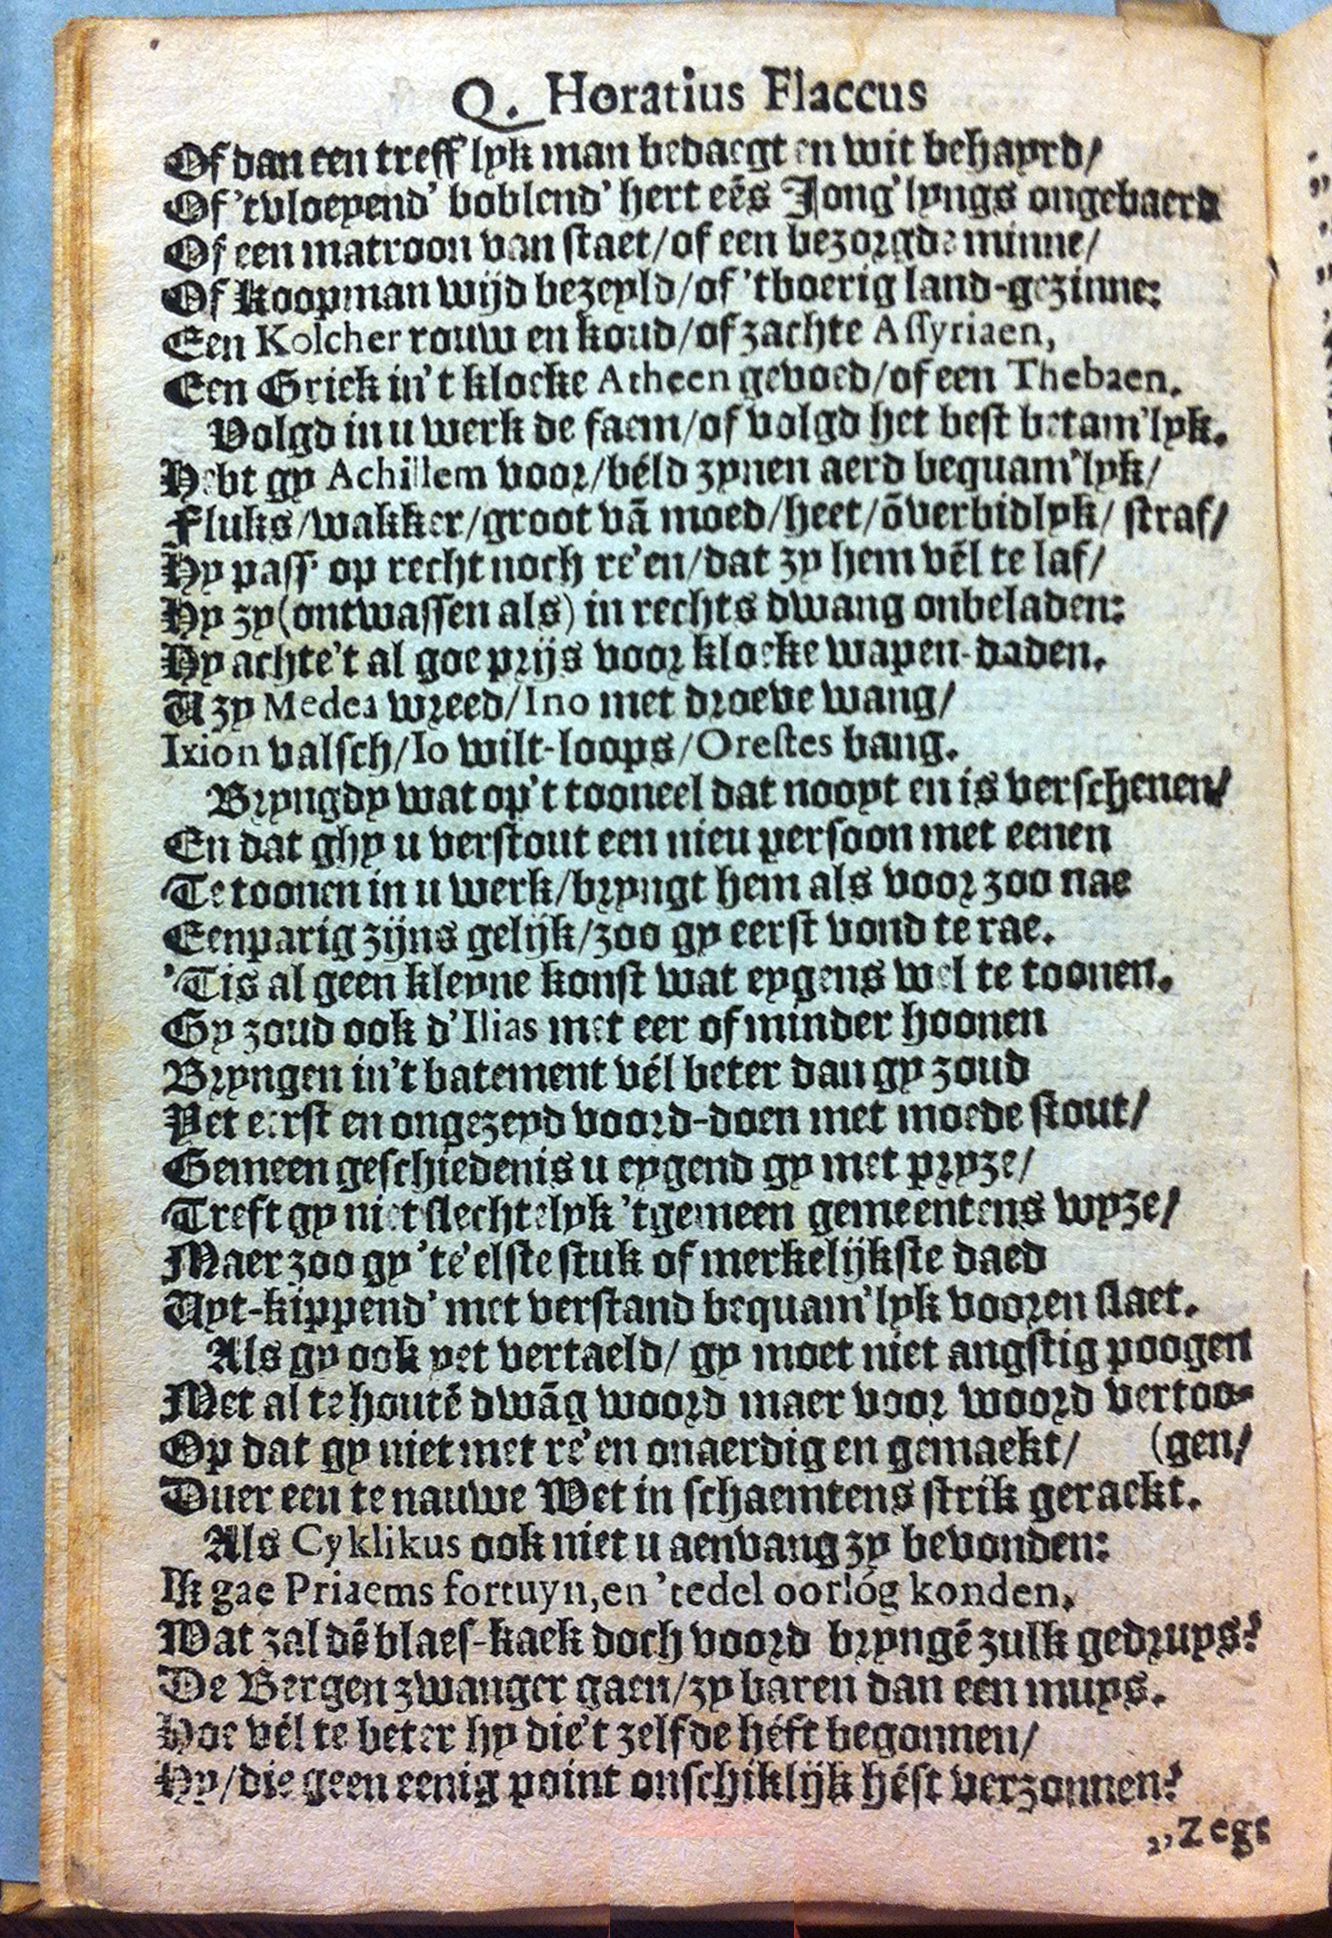 Q. Horatius Flaccus
Of dan een treff'lyk man bedaegt en wit behayrd/
Of 'tvloeyend' boblend' hert eēs Jong'lyngs ongebaerd
Of een matroon van staet/of een bezorgde minne/
Of koopman wijd bezeyld/of 'tboerig land-gezinne:
Een Kolcher rouw en koud/of zachte Assyriaen,
Een Griek in't klocke Atheen gevoed/of een Thebaen.
Volgd in u werk de faem/of volgd het best betam'lyk.
Hebt gy Achillem voor/béld zynen aerd bequam'lyk/
Fluks/wakker/groot vā moed/heet/ōverbidlyk/ straf/
Hy pass' op recht noch re'en/dat zy hem vél te laf/
Hy zy (ontwassen als) in rechts dwang onbeladen:
Hy achte't al goe prijs voor kloeke wapen-daden.
U zy Medea wreed/Ino met droeve wang/
Ixion valsch/Io wilt-loops/Orestes bang.
Bryngdy wat op't tooneel dat nooyt en is verschenen/
En dat ghy u verstout een nieu persoon met eenen
Te toonen in u werk/bryngt hem als voor zoo nae
Eenparig zijns gelijk/zoo gy eerst vond te rae.
'Tis al geen kleyne konst wat eygens wel te toonen.
Gy zoud ook d'Ilias met eer of minder hoonen
Bryngen in't batement vél beter dan gy zoud
Yet eerst en ongezeyd voord-doen met moede stout/
Gemeen geschiedenis u eygend gy met pryze/
Treft gy niet slechtelyk 'tgemeen gemeentens wyze/
Maer zoo gy 'te'elste stuk of merkelijkste daed
Uyt-kippend' met verstand bequam'lyk vooren slaet.
Als gy ook yet vertaeld/ gy moet niet angstig poogen
Met al te houtē dwāg woord maer voor woord vertoo-
Op dat gy niet met re'en onaerdig en gemaekt/ (gen/
Duer een te nauwe Wet in schaemtens strik geraekt.
Als Cyklikus ook niet u aenvang zy bevonden:
Ik gae Priaems fortuyn, en 'tedel oorlóg konden,
Wat zal dē blaes-kaek doch voord bryngē zulk gedruys?
De Bergen zwanger gaen/zy baren dan een muys.
Hoe vél te beter hy die't zelfde héft begonnen/
Hy/die geen eenig point onschiklijk héft verzonnen?
,,Zegt